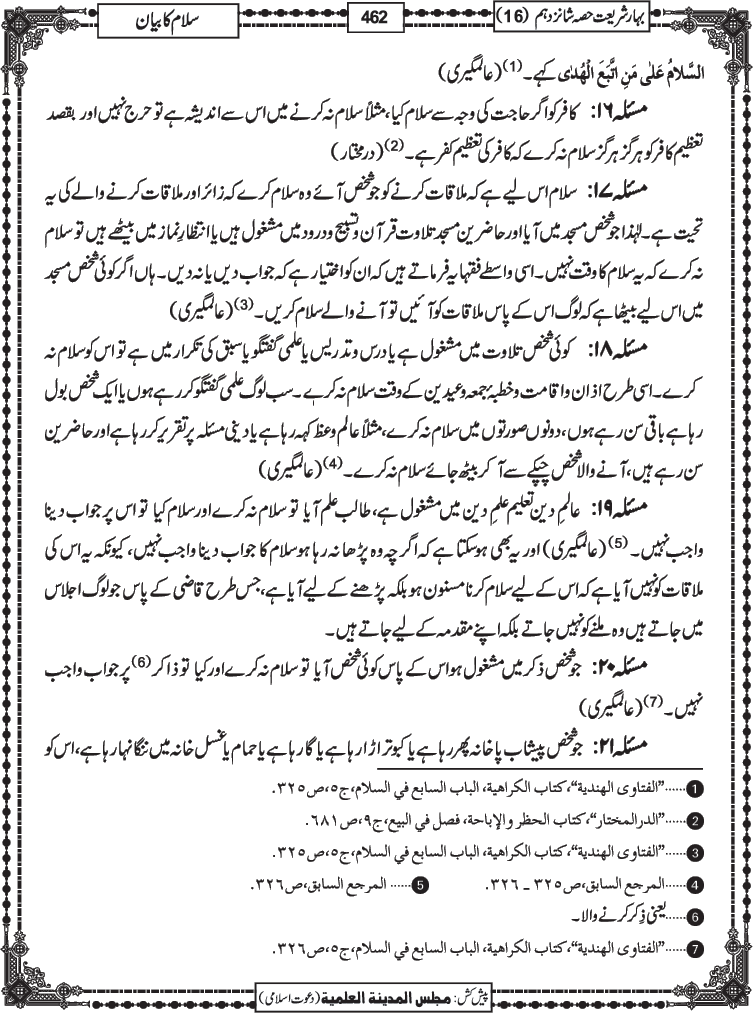 بہارِ شریعت حصہ شانزدہم (16)
462
سلام کا بیان
السَّلَامُ عَلٰی مَنِ اتَّبَعَ الْھُدٰی کہے۔(1) (عالمگیری)
مسئلہ ۱۶: کافر کو اگر حاجت کی وجہ سے سلام کیا، مثلاً سلام نہ کرنے میں اس سے اندیشہ ہے تو حرج نہیں اور بقصد
تعظیم کافر کو ہرگز ہرگز سلام نہ کرے کہ کافر کی تعظیم کفر ہے۔(2) (درمختار)
مسئلہ ۱۷: سلام اس لیے ہے کہ ملاقات کرنے کو جو شخص آئے وہ سلام کرے کہ زائر اور ملاقات کرنے والے کی یہ
تحیت ہے۔ لہٰذا جو شخص مسجد میں آیا اور حاضرین مسجد تلاوت قرآن و تسبیح و درود میں مشغول ہیں یا انتظارِ نماز میں بیٹھے ہیں تو سلام
نہ کرے کہ یہ سلام کا وقت نہیں۔ اسی واسطے فقہا یہ فرماتے ہیں کہ ان کو اختیار ہے کہ جواب دیں یا نہ دیں۔ ہاں اگر کوئی شخص مسجد
میں اس لیے بیٹھا ہے کہ لوگ اس کے پاس ملاقات کو آئیں تو آنے والے سلام کریں۔(3) (عالمگیری)
مسئلہ ۱۸: کوئی شخص تلاوت میں مشغول ہے یا درس و تدریس یا علمی گفتگو یا سبق کی تکرار میں ہے تو اس کو سلام نہ
کرے۔ اسی طرح اذان و اقامت و خطبۂ جمعہ و عیدین کے وقت سلام نہ کرے۔ سب لوگ علمی گفتگو کر رہے ہوں یا ایک شخص بول
رہا ہے باقی سن رہے ہوں، دونوں صورتوں میں سلام نہ کرے، مثلاً عالم وعظ کہہ رہا ہے یا دینی مسئلہ پر تقریر کر رہا ہے اور حاضرین
سن رہے ہیں، آنے والا شخص چپکے سے آکر بیٹھ جائے سلام نہ کرے۔(4) (عالمگیری)
مسئلہ ۱۹: عالمِ دین تعلیم علمِ دین میں مشغول ہے، طالب علم آیا تو سلام نہ کرے اور سلام کیا تو اس پر جواب دینا
واجب نہیں۔(5) (عالمگیری) اور یہ بھی ہوسکتا ہے کہ اگرچہ وہ پڑھا نہ رہا ہو سلام کا جواب دینا واجب نہیں، کیونکہ یہ اس کی
ملاقات کو نہیں آیا ہے کہ اس کے لیے سلام کرنا مسنون ہو بلکہ پڑھنے کے لیے آیا ہے، جس طرح قاضی کے پاس جو لوگ اجلاس
میں جاتے ہیں وہ ملنے کو نہیں جاتے بلکہ اپنے مقدمہ کے لیے جاتے ہیں۔
مسئلہ ۲۰: جو شخص ذکر میں مشغول ہو اس کے پاس کوئی شخص آیا تو سلام نہ کرے اور کیا تو ذاکر(6) پر جواب واجب
نہیں۔(7) (عالمگیری)
مسئلہ ۲۱: جو شخص پیشاب پاخانہ پھر رہا ہے یا کبوتر اڑا رہا ہے یا گا رہا ہے یا حمام یا غسل خانہ میں ننگا نہا رہا ہے، اس کو
1......"الفتاوی الھندیة"، کتاب الکراھیة، الباب السابع في السلام، ج٥، ص٣٢٥.
2......"الدرالمختار"، کتاب الحظر والإباحة، فصل في البیع، ج٩، ص٦٨١.
3......"الفتاوی الھندیة"، کتاب الکراھیة، الباب السابع في السلام، ج٥، ص٣٢٥.
4......المرجع السابق، ص٣٢٥ ـ ٣٢٦. 5...... المرجع السابق، ص٣٢٦.
6......یعنی ذِکر کرنے والا۔
7......"الفتاوی الھندیة"، کتاب الکراھیة، الباب السابع في السلام، ج٥، ص٣٢٦.
پیش کش: مجلس المدینة العلمیة (دعوت اسلامی)